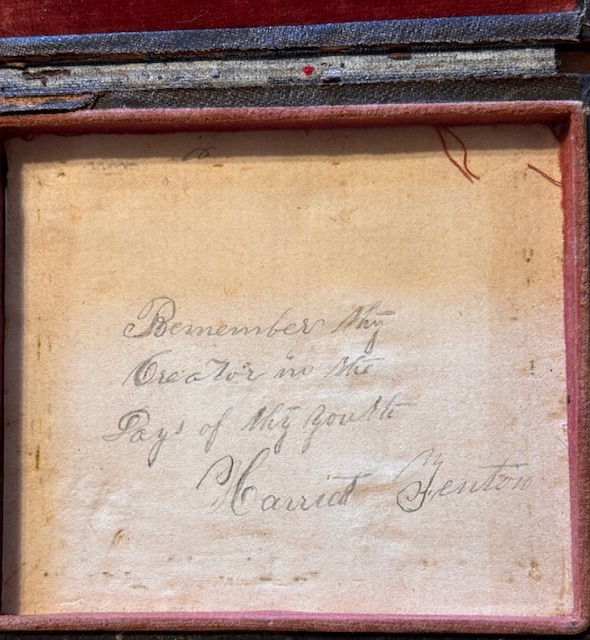 Remember thy
Creator in the
Days of thy youth
Harriet Fenton